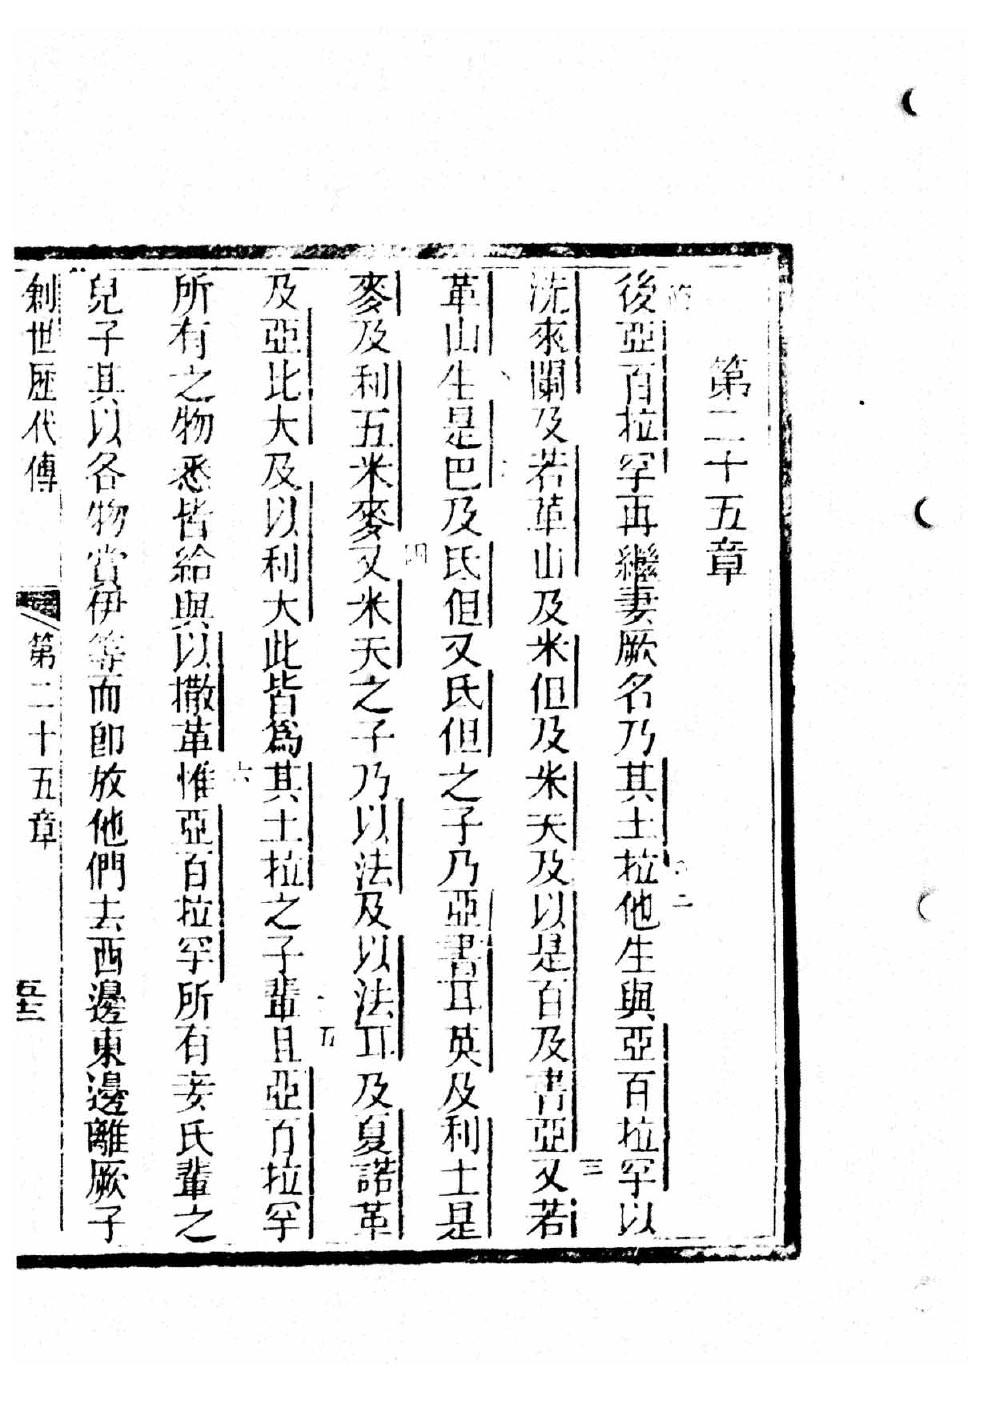 第二十五章
後亞百拉罕再繼妻厥名乃其土拉他生與亞百拉罕以
二
洗來闌及若革山及米但及米天及以是百及書亞又若
三
革山生是巴及氏但又氏但之子乃亞書耳英及利土是
麥及利五米麥又米天之子乃以法及以法耳及夏諾革
四
及亞比大及以利大此皆為其土拉之子輩且亞百拉罕
五
所有之物悉皆給與以撒革惟亞百拉罕所有妾氏輩之
六
兒子其以各物賞伊等而卽放他們去西邊東邊離厥子
創世歷代傳
第二十五章
五十三